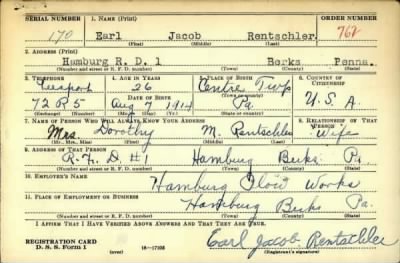 SERIAL NUMBER 1. NAME (Print) ORDER NUMBER
170 Earl Jacob Rentschler 762
(First) (Middle) (Last)
2. ADDRESS (Print)
Hamburg R. D. 1 Berks Penna.
(Number and street or R. F. D. number) (Town) (County) (State)
3. TELEPHONE 4. AGE IN YEARS 5. PLACE OF BIRTH 6. COUNTRY OF CITIZENSHIP
26 Centre Twp
DATE OF BIRTH (Town or county)
72 R 5 Aug 7 1914 Pa. U. S. A.
(Exchange) (Number) (Mo.) (Day) (Yr.) (State or country)
7. NAME OF PERSON WHO WILL ALWAYS KNOW YOUR ADDRESS 8. RELATIONSHIP OF THAT PERSON
Mrs. Dorothy M. Rentschler Wife
(Mr., Mrs., Miss) (First) (Middle) (Last)
9. ADDRESS OF THAT PERSON
R. F. D #1 Hamburg Berks Pa.
(Number and street or R. F. D. number) (Town) (County) (State)
10. EMPLOYER'S NAME
Hamburg Plow Works
11. PLACE OF EMPLOYMENT OR BUSINESS
Hamburg Berks Pa.
(Number and street or R. F. D. number) (Town) (County) (State)
I AFFIRM THAT I HAVE VERIFIED ABOVE ANSWERS AND THAT THEY ARE TRUE.
REGISTRATION CARD
D. S. S. Form 1 (over) 16—17105 Earl Jacob Rentschler
(Registrant's signature)